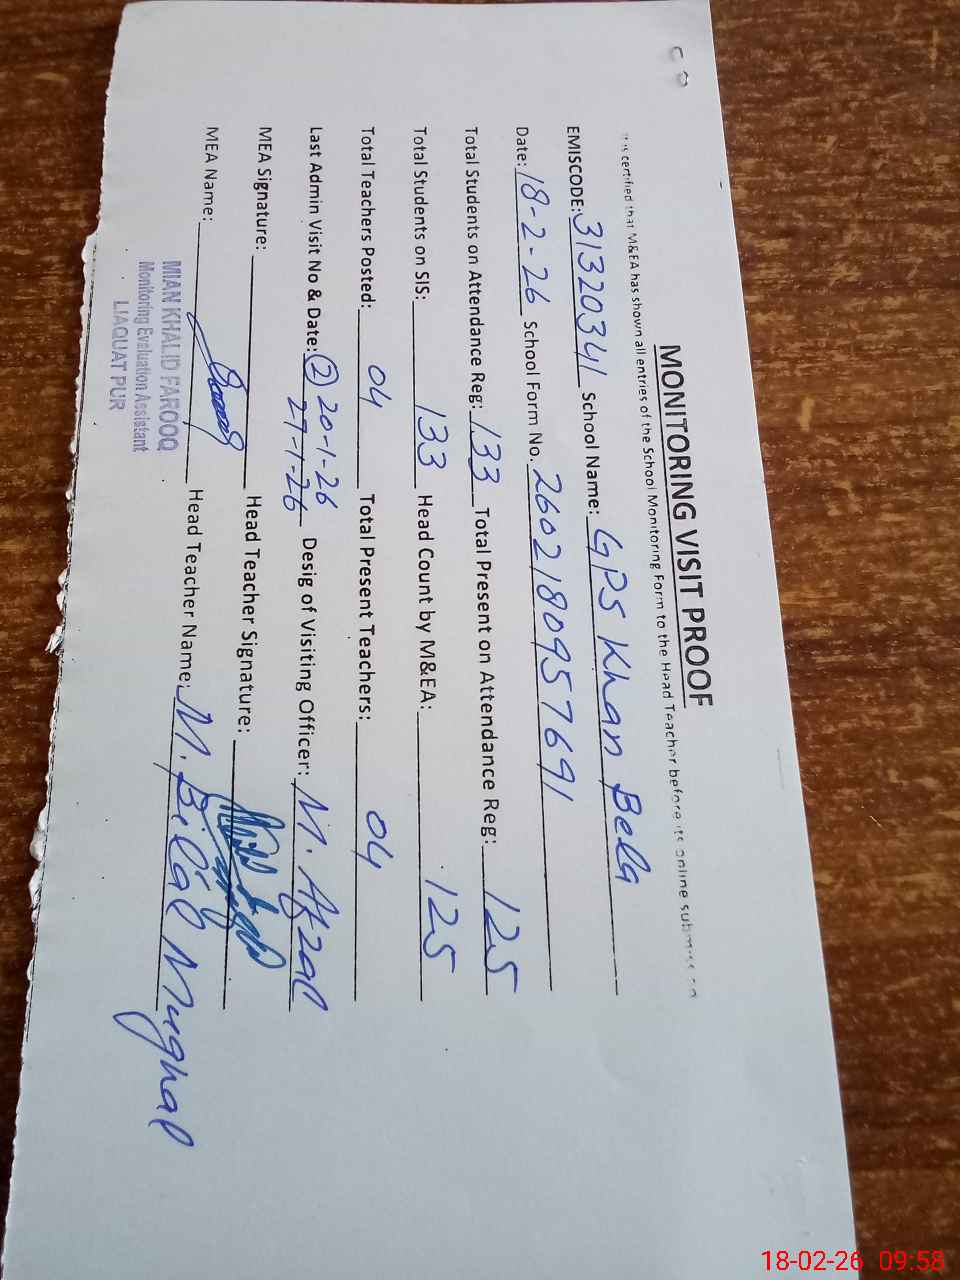 MONITORING VISIT PROOF
It is certified that M&EA has shown all entries of the School Monitoring Form to the Head Teacher before its online submission
EMISCODE: 31320341 School Name: GPS Khan Bela
Date: 18-2-26 School Form No. 2602180957691
Total Students on Attendance Reg: 133 Total Present on Attendance Reg: 125
Total Students on SIS: 133 Head Count by M&EA: 125
Total Teachers Posted: 04 Total Present Teachers: 04
Last Admin Visit No & Date: 2 20-1-26 Desig of Visiting Officer: M. Afzal
27-1-26
MEA Signature: Head Teacher Signature:
MEA Name: Head Teacher Name: M. Bilal Mughal
MIAN KHALID FAROOQ
Monitoring Evaluation Assistant
LIAQUAT PUR
18-02-26 09:58